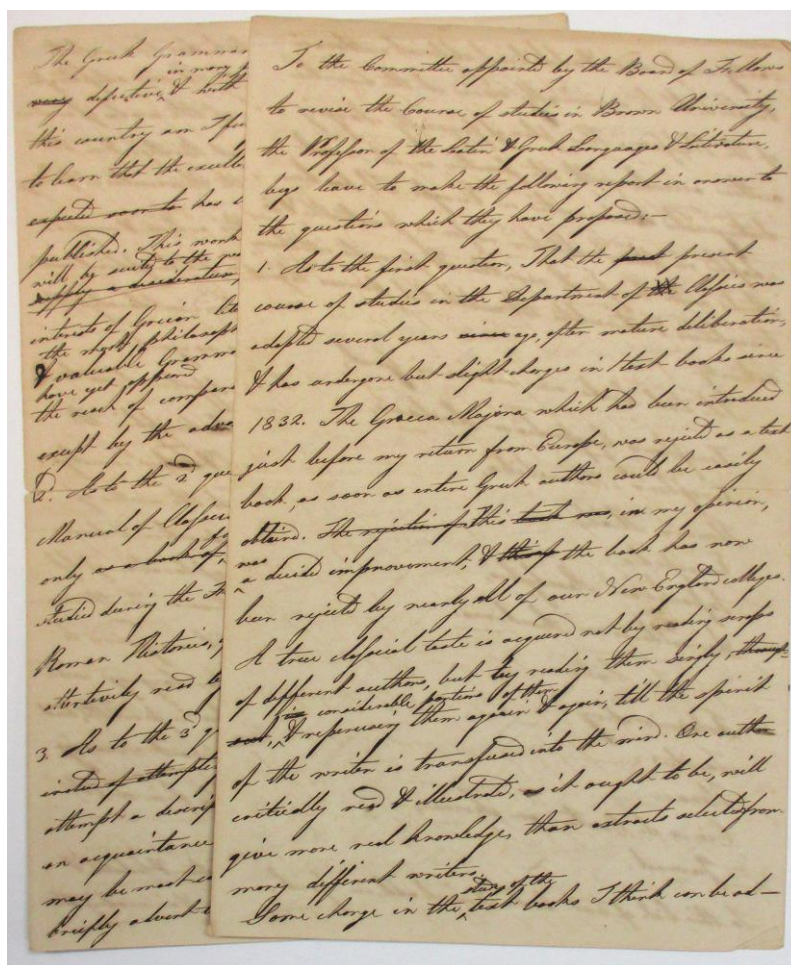 The Greek Grammar
in many
very defective, & both
this country am I
to learn that the excelle
expected soon to has
published. This work
will by
supply a desideratum,
interests of Grecian lit
the most philosoph
& valuable Gramma
have yet appeared
the reach of compar
except by the adva
2. As to the 2d que
Manual of Classic
only as a book of
studied during the
Roman Histories,
attentively read
3. As to the 3d q
instead of attempt
attempt a descrip
an acquaintance
may be most
briefly advert
To the Committee appointed by the Board of Fellows
to revise the Course of studies in Brown University,
the Professor of the Latin & Greek Languages & Literature,
begs leave to make the following report in answer to
the questions which they have proposed:—
1. As to the first question, That the present
course of studies in the Department of the Classics was
adopted several years since ago, after mature deliberation,
& has undergone but slight changes in text books since
1832. The Graeca Majora which had been introduced
just before my return from Europe, was rejected as a text
book, as soon as entire Greek authors could be easily
obtained. The rejection of this in my opinion,
was
a decided improvement, & the book has now
been rejected by nearly all of our New England colleges.
A true classical taste is acquired not by reading scraps
of different authors, but by reading them singly, through
in considerable portions of them
out, & reperusing them again & again, till the spirit
of the writer is transfused into the mind. One author
critically read & illustrated, as it ought to be, will
give more real knowledge, than extracts selected from
many different writers.
Some change in the text books I think can be ad—